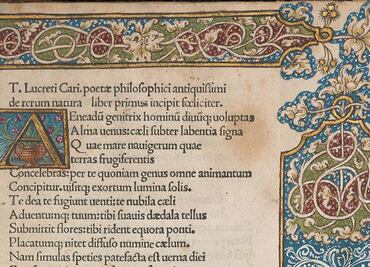 T. Lucreti Cari. poetæ philosophici antiquissimi
de rerum natura liber primus incipit fœliciter.
AEneadū genitrix hominū diuūq; uoluptas
Alma uenus: cæli subter labentia signa
Quae mare nauigerum quae
terras frugiferentis
Concelebras: per te quoniam genus omne animantum
Concipitur. uisitq; exortum lumina solis.
Te dea te fugiunt uenti: te nubila cæli
Aduentumq; tuum: tibi suauis dædala tellus
Submittit flores: tibi rident equora ponti.
Placatumq; nitet diffuso numine cælum.
Nam simulas speties patefacta est uerna diei